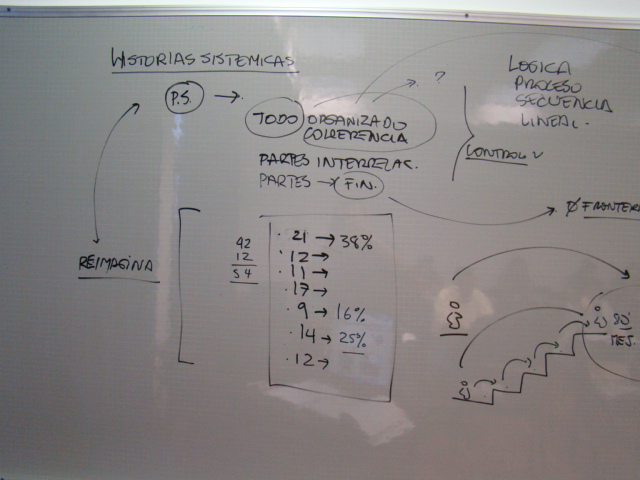 HISTORIAS SISTEMICAS
P.S. → 
TODO ORGANIZADO
COHERENCIA
→ ?
PARTES INTERRELAC.
PARTES → FIN.
LOGICA
PROCESO
SECUENCIA
LINEAL.
CONTROL
Ø FRONTERA
REIMAGINA
42
12
54
· 21 → 38%
· 12 →
· 11 →
· 17 →
· 9 → 16%
· 14 → 25%
· 12 →
MES.